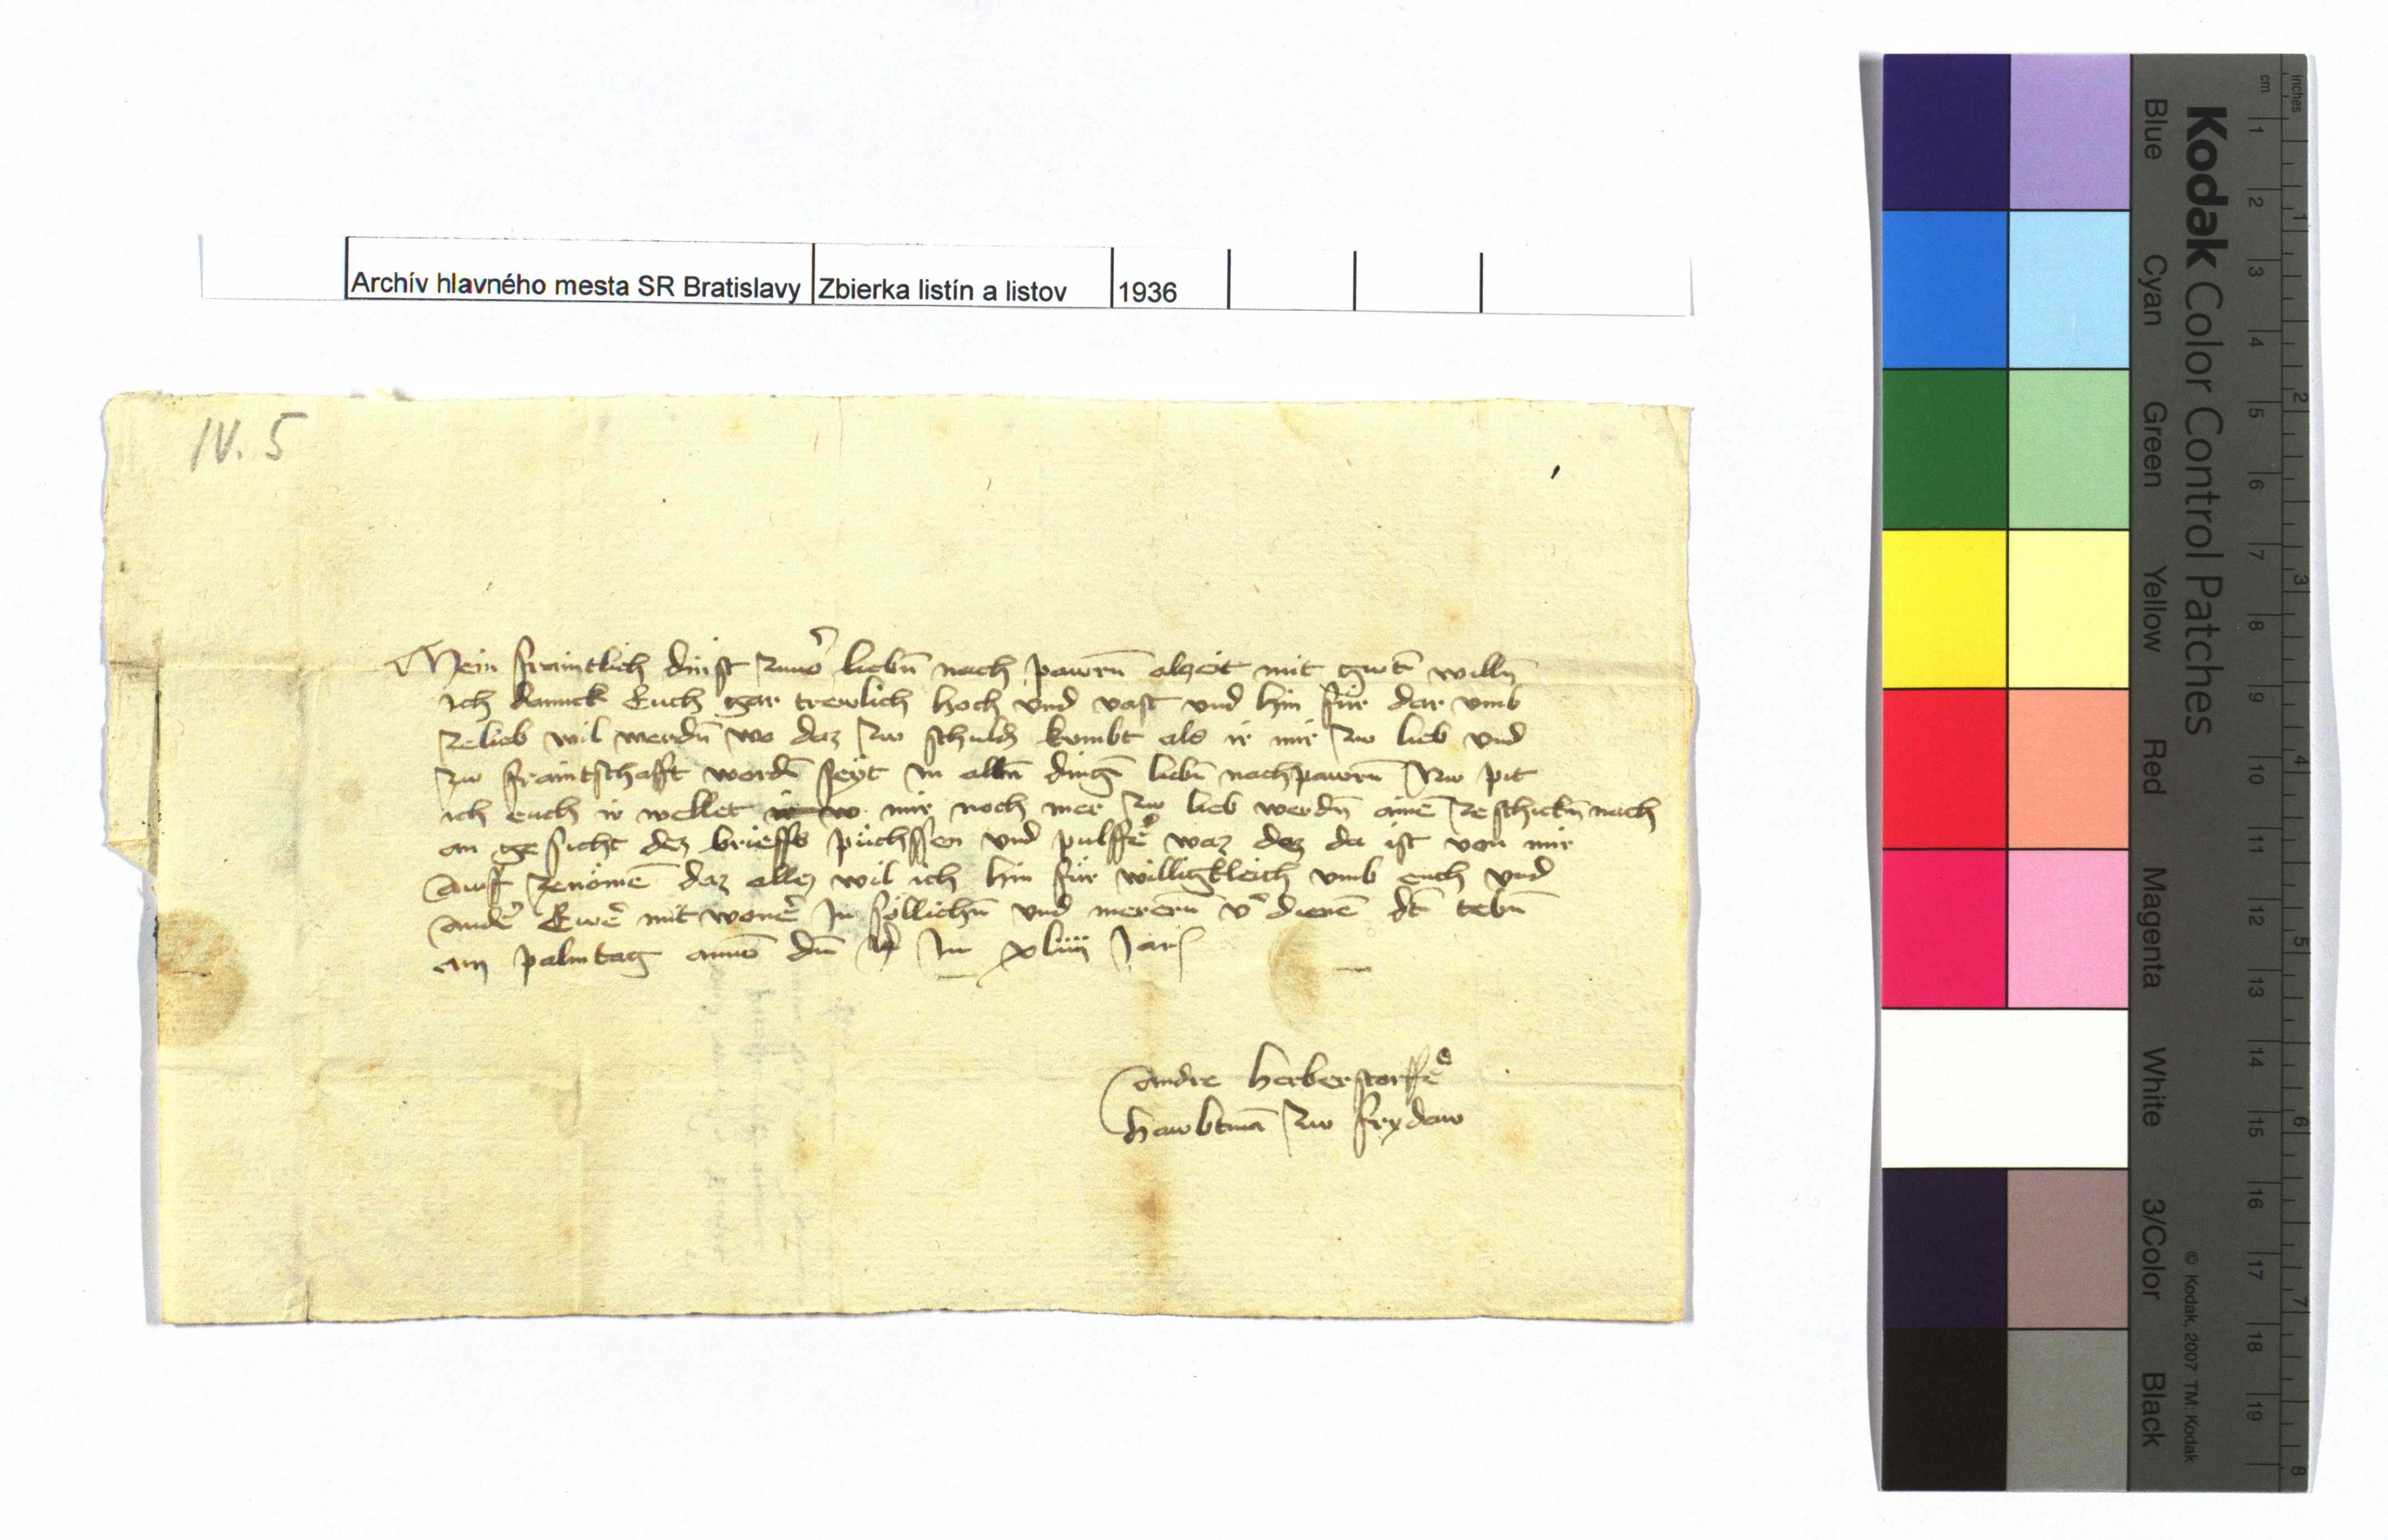 Archív hlavného mesta SR Bratislavy Zbierka listín a listov 1936
IV. 5
Mein fraintlich dinst zuuor liebn̄ nach pawrn̄ alzeit mit gutn̄ willn̄
ich dannck Euch gar trewlich hoch vnd vast vnd hin für dar vmb
ze lieb wil werdn̄ wo daz zw schuldn kumbt als ir mir zw lieb vnd
zw fraintschafft wordn̄ seyt in alln̄ dingn̄ liebn̄ nachpawrn̄ Nw pit
ich euch ir wellet mir noch mer zw lieb werdn̄ ainē ze schickn̄ nach
an ge sicht dez brieffs püchssen vnd pulffer waz dez da ist von mir
auff zenömē daz allez wil ich hin für willigkleich vmb euch vnd
ander Ewer mit woner in söllichn̄ vnd merern̄ v̄dienē dt̄ Gebn̄
am palmtag anno dn̄ in xliiii Jar
andre herberstorffer
hawbtmā zw frydaw
Kodak Color Control Patches
Blue Cyan Green Yellow Red Magenta White 3/Color Black
© Kodak, 2007 TM: Kodak
inches 1 2 3 4 5 6 7 8
cm 1 2 3 4 5 6 7 8 9 10 11 12 13 14 15 16 17 18 19